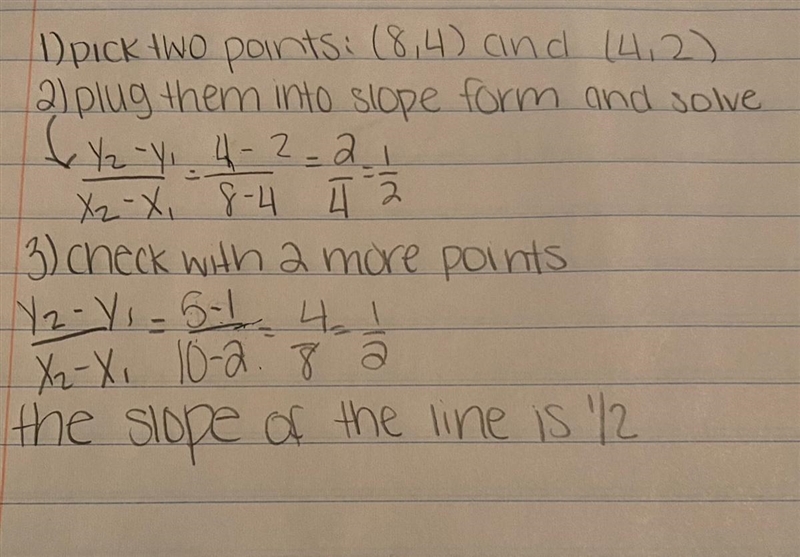 1) pick two points: (8,4) and (4,2)
2) plug them into slope form and solve
↳ y₂-y₁/x₂-x₁ = 4-2/8-4 = 2/4 = 1/2
3) check with 2 more points
y₂-y₁/x₂-x₁ = 5-1/10-2. = 4/8 = 1/2
the slope of the line is 1/2